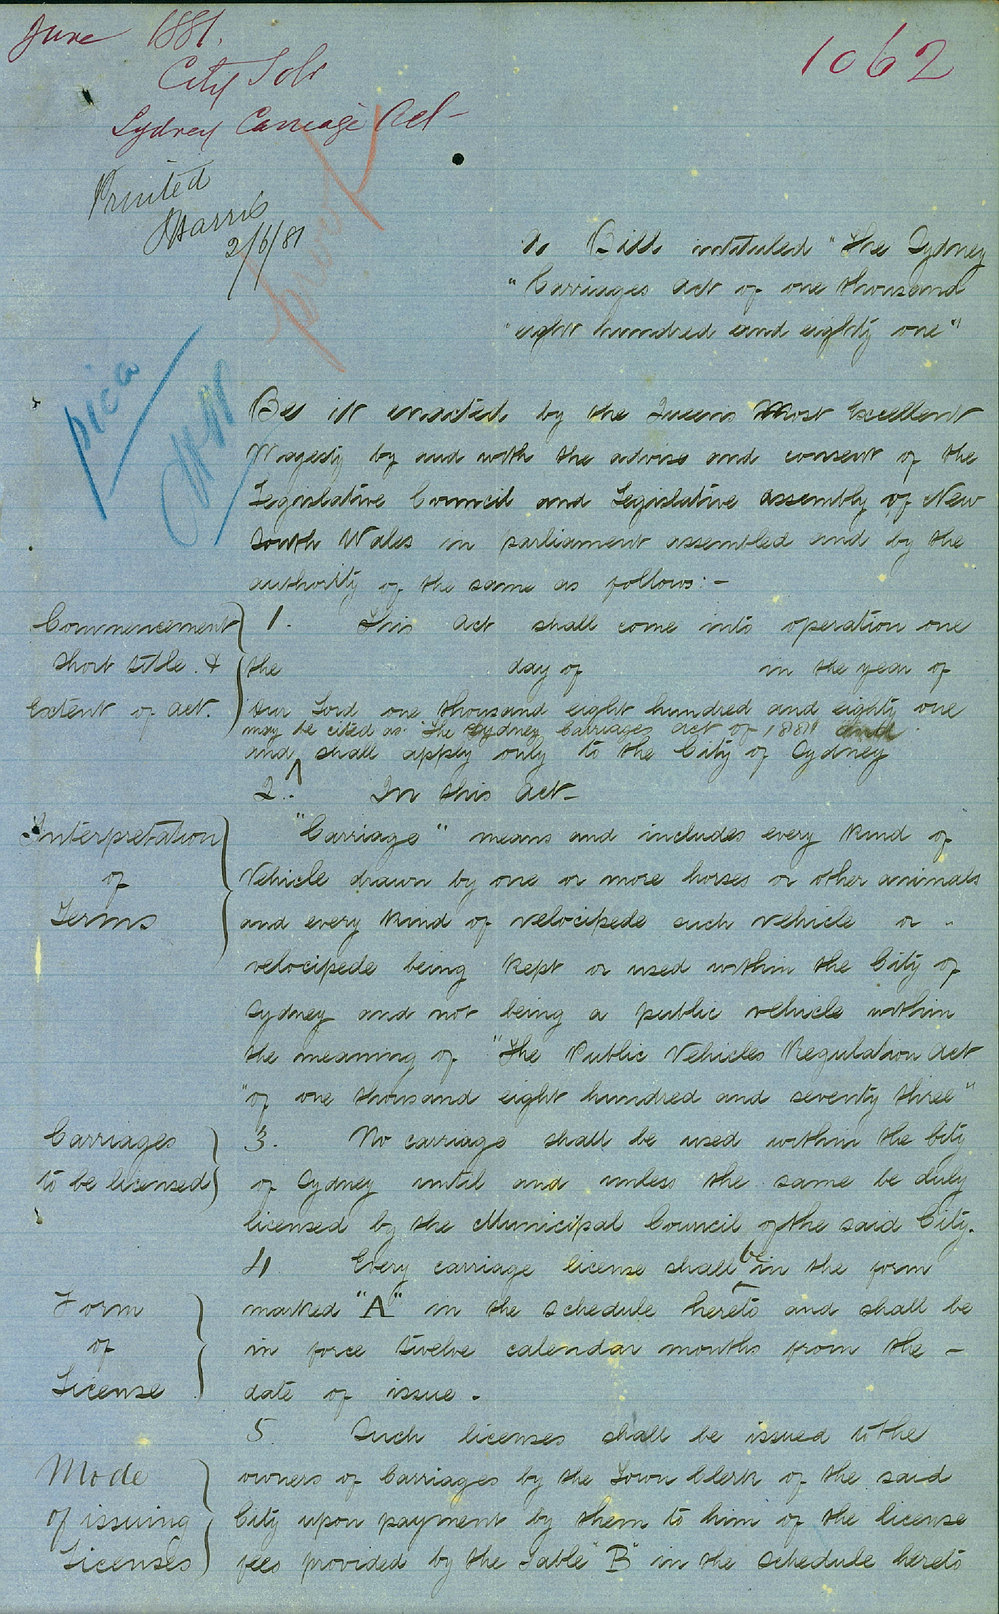 June 1881.
1062
City Solr
Sydney Carriage Act -
Printed
Harris
2/6/81
proof
pica
A Bill intituled "The Sydney
"Carriages Act of one thousand
"eight hundred and eighty one"
Be it enacted by the Queens Most Excellent
Majesty by and with the advise and consent of the
Legislative Council and Legislative Assembly of New
South Wales in parliament assembled and by the
authority of the same as follows:-
Commencement
short title &
extent of act.
1. This Act shall come into operation one
the day of in the year of
our Lord one thousand eight hundred and eighty one
may be cited as "The Sydney Carriages Act of 1881" and
and shall apply only to the City of Sydney
2. In this Act -
Interpretation
of
Terms
"Carriage" means and includes every kind of
Vehicle drawn by one or more horses or other animals
and every kind of velocipede such vehicle or -
velocipede being kept or used within the City of
Sydney and not being a public vehicle within
the meaning of "The Public Vehicles Regulation Act
"of one thousand eight hundred and seventy three"
Carriages
to be licensed
3. No carriage shall be used within the City
of Sydney until and unless the same be duly
licensed by the Municipal Council of the said City.
4 Every carriage license shall be in the form
Form
of
License
marked "A" in the schedule hereto and shall be
in force twelve calendar months from the -
date of issue.
5 Such licenses shall be issued to the
Mode
of issuing
Licenses
owners of Carriages by the Town Clerk of the said
City upon payment by them to him of the license
fees provided by the Table "B" in the schedule hereto